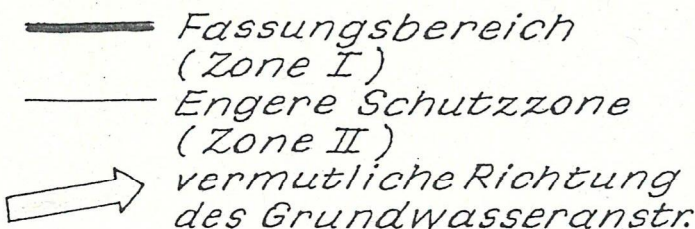 Fassungsbereich
(Zone I)
Engere Schutzzone
(Zone II)
vermutliche Richtung
des Grundwasseranstr.